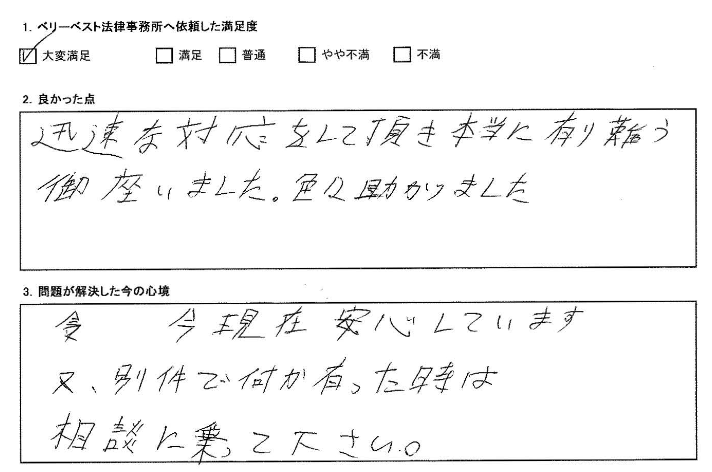 1. ベリーベスト法律事務所へ依頼した満足度
☑ 大変満足 □ 満足 □ 普通 □ やや不満 □ 不満
2. 良かった点
迅速な対応をして頂き本当に有り難う
御座いました。色々助かりました
3. 問題が解決した今の心境
今現在安心しています
又、別件で何か有った時は
相談に乗って下さい。